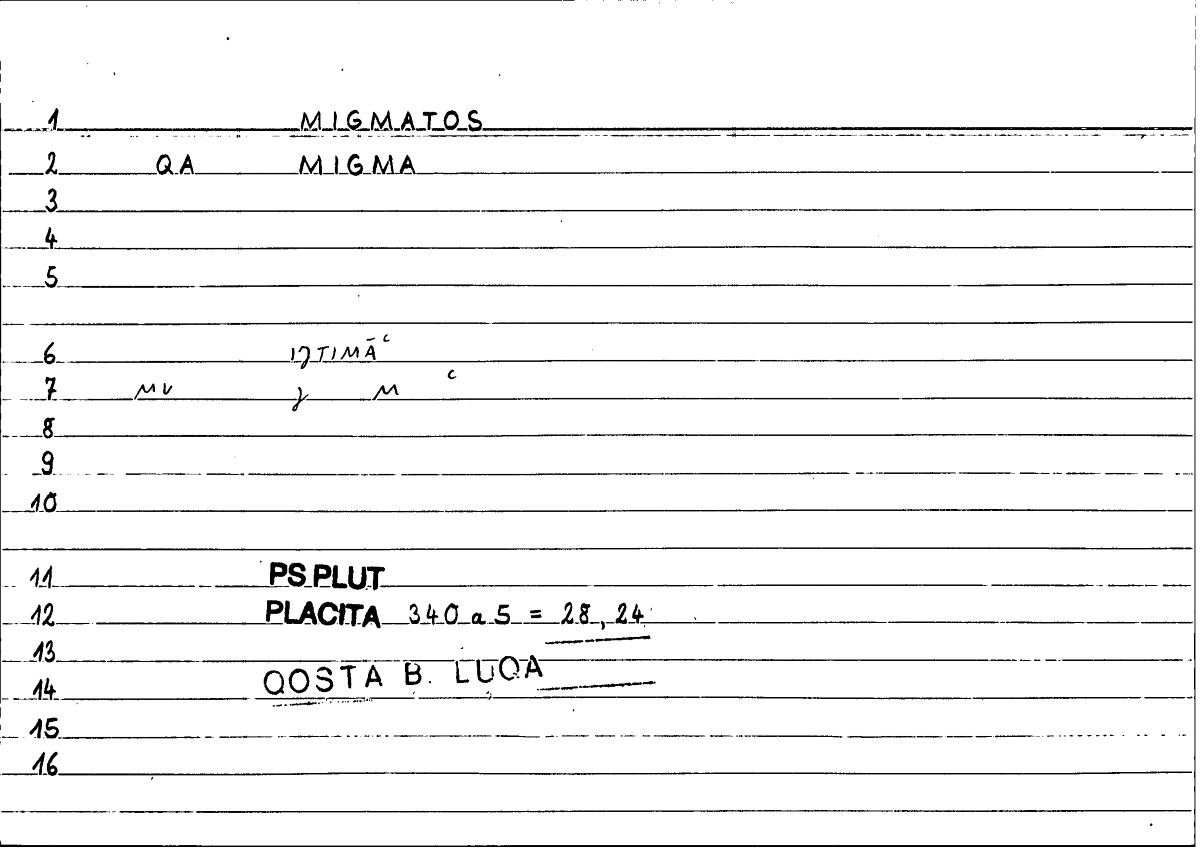 1 MIGMATOS
2 QA MIGMA
3
4
5
6
7 MU M c
8
9
10
11 PS PLUT
12 PLACITA 340 a 5 = 28, 24
13
14 QOSTA B. LUQA
15
16